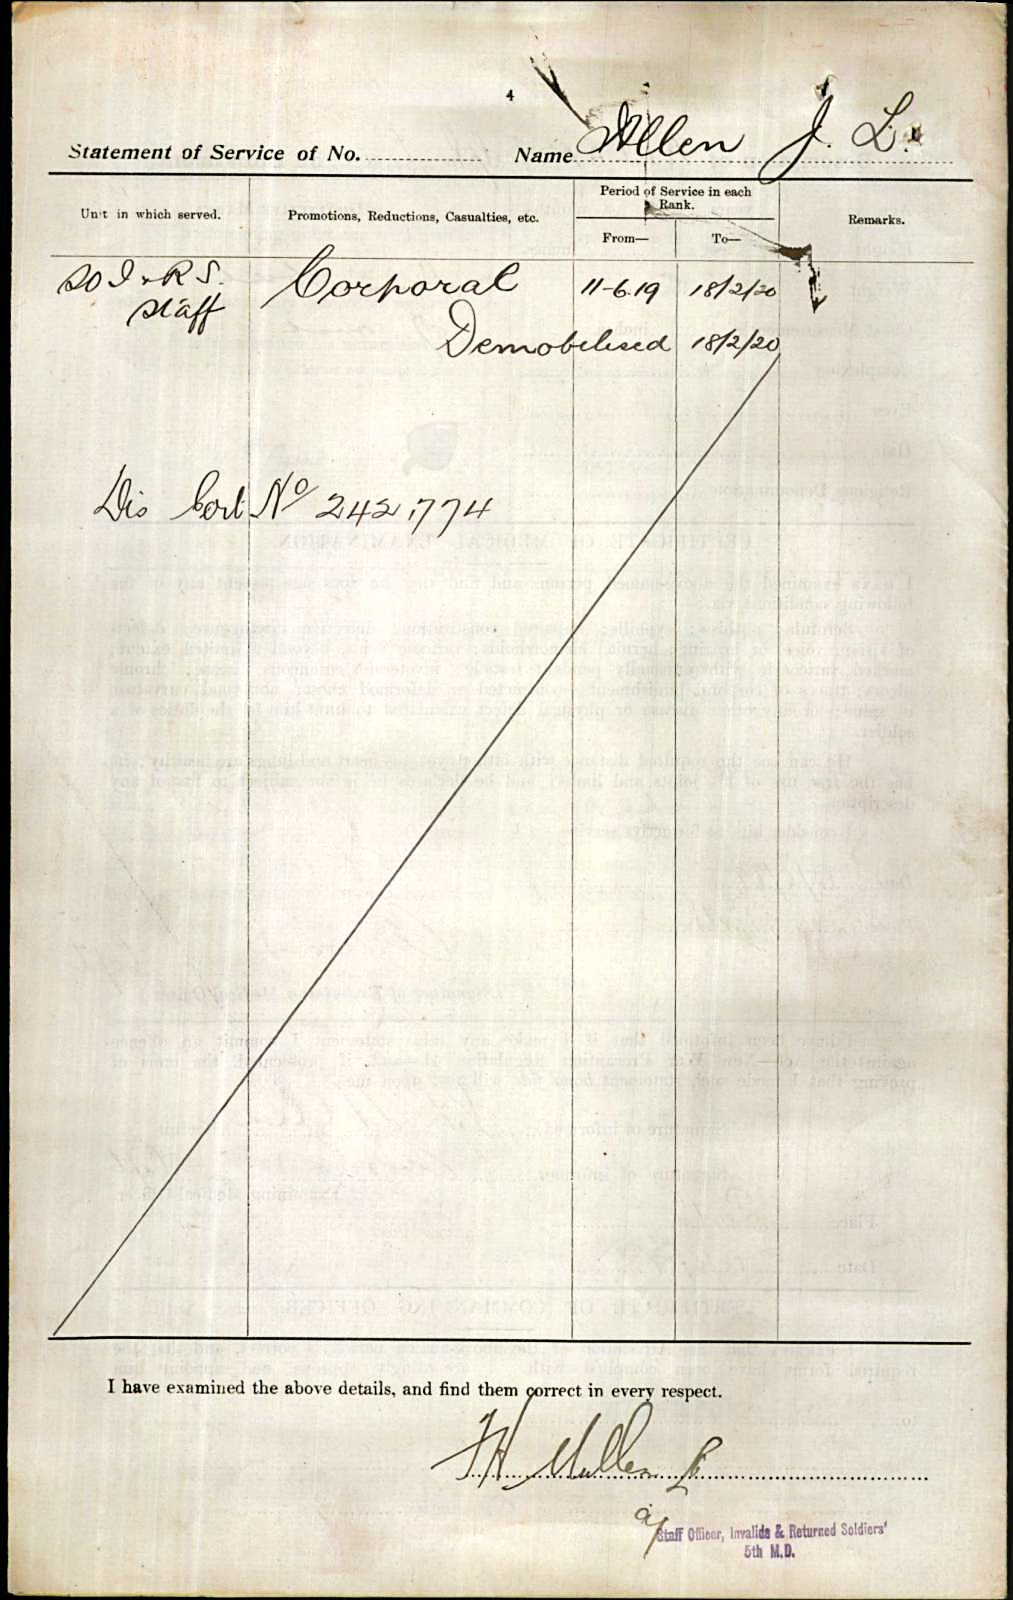 4
Statement of Service of No. Name Allen J. L.
Unit in which served. Promotions, Reductions, Casualties, etc. Period of Service in each Rank. Remarks.
From— To—
S O I & R S. Corporal 11-6.19 18/2/20
Staff
Demobilised 18/2/20
Dis Cert No 242,774
I have examined the above details, and find them correct in every respect.
F H Mullen Lt
a/
Staff Officer, Invalids & Returned Soldiers'
5th M.D.